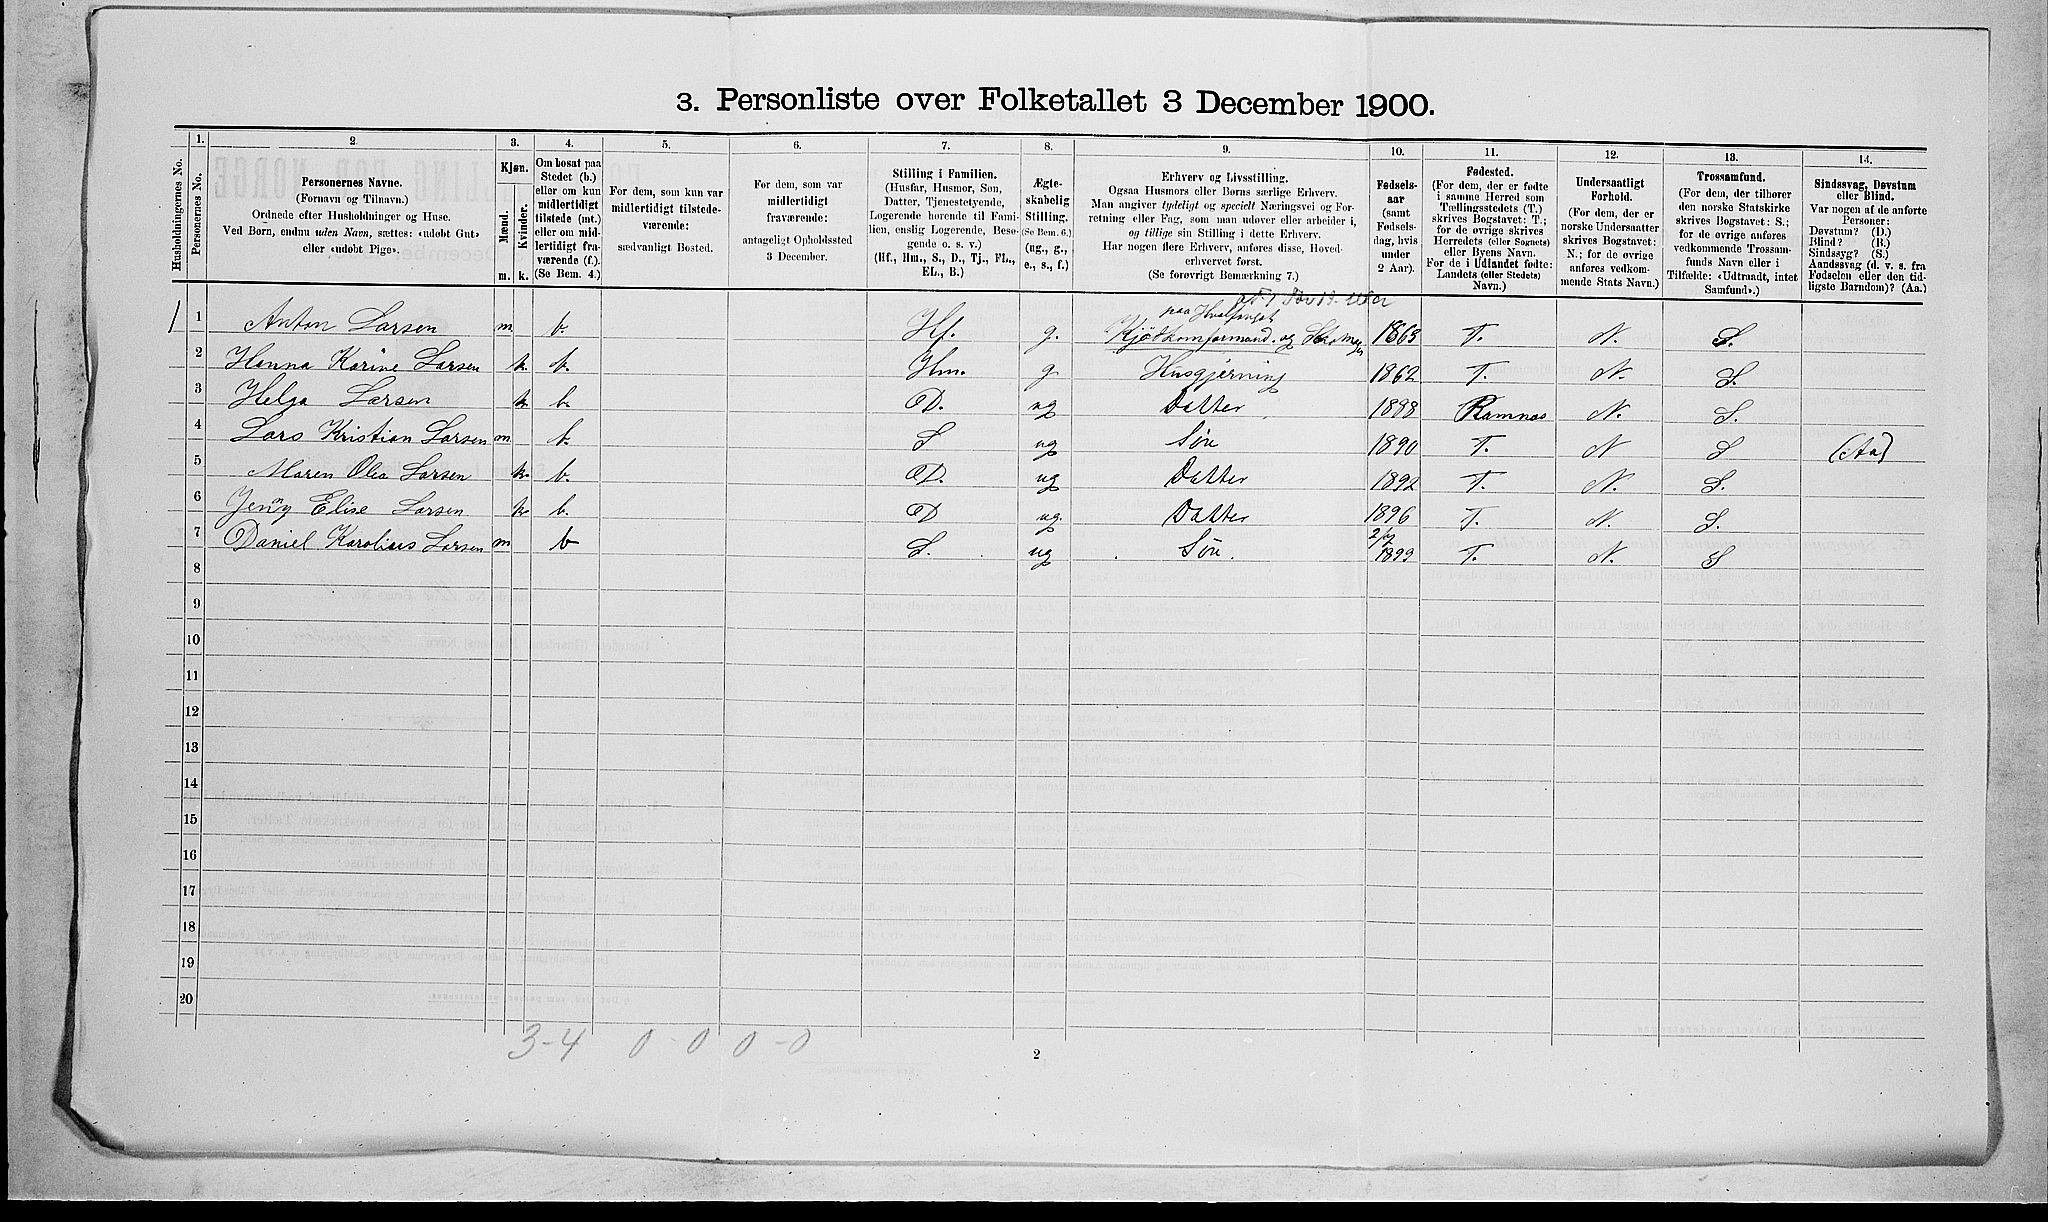 3. Personliste over Folketallet 3 December 1900.
1. 2. 3. 4. 5. 6. 7. 8. 9. 10. 11. 12. 13. 14.
Husholdningernes No.
Personernes No.
Personernes Navne.
(Fornavn og Tilnavn.)
Ordnede efter Husholdninger og Huse.
Ved Børn, endnu uden Navn, sættes: «udøbt Gut»
eller «udøbt Pige».
Kjøn.
Mænd.
Kvinder.
m. k.
Om bosat paa
Stedet (b.)
eller om kun
midlertidigt
tilstede (mt.)
eller om mid-
lertidigt fra-
værende (f.).
(Se Bem. 4.)
For dem, som kun var
midlertidigt tilstede-
værende:
sædvanligt Bosted.
For dem, som var
midlertidigt
fraværende:
antageligt Opholdssted
3 December.
Stilling i Familien.
(Husfar, Husmor, Søn,
Datter, Tjenestetyende,
Logerende hørende til Fami-
lien, enslig Logerende, Besø-
gende o. s. v.)
(Hf., Hm., S., D., Tj., FL.,
EL., B.)
Ægte-
skabelig
Stilling.
(Se Bem. 6.)
(ug., g.,
e., s., f.)
Erhverv og Livsstilling.
Ogsaa Husmors eller Børns særlige Erhverv.
Man angiver tydeligt og specielt Næringsvei og For-
retning eller Fag, som man udøver eller arbeider i,
og tillige sin Stilling i dette Erhverv.
Har nogen flere Erhverv, anføres disse, Hoved-
erhvervet først.
(Se forøvrigt Bemærkning 7.)
Fødsels-
aar
(samt
Fødsels-
dag, hvis
under
2 Aar).
Fødested.
(For dem, der er fødte
i samme Herred som
Tællingsstedets (T.)
skrives Bogstavet: T.;
for de øvrige skrives
Herredets (eller Sognets)
eller Byens Navn.
For de i Udlandet fødte:
Landets (eller Stedets)
Navn.)
Undersaatligt
Forhold.
(For dem, der er
norske Undersaatter
skrives Bogstavet:
N.; for de øvrige
anføres vedkom-
mende Stats Navn.)
Trossamfund.
(For dem, der tilhører
den norske Statskirke
skrives Bogstavet: S.;
for de øvrige anføres
vedkommende Trossam-
funds Navn eller i
Tilfælde: «Udtraadt, intet
Samfund».)
Sindssvag, Døvstum
eller Blind.
Var nogen af de anførte
Personer:
Døvstum? (D.)
Blind? (B.)
Sindssyg? (S.)
Aandssvag (d. v. s. fra
Fødselen eller den tid-
ligste Barndom)? (Aa.)
paa Hvalfangst
1 1 Anton Larsen m b. Hf. g. Kjødkomformand. og 1863 T. N. S.
2 Hanna Karine Larsen k b. Hm. g Husgjerning 1862 T. N. S.
3 Helga Larsen k b. D. ug Datter 1888 Ramnes N. S.
4 Lars Kristian Larsen m b. S ug Søn 1890 T. N S (Aa)
5 Maren Olea Larsen k b. D. ug Datter 1892 T. N. S.
6 Jenny Elise Larsen k b. D ug. Datter 1896 T. N. S.
7 Daniel Karolius Larsen m b S. ug Søn. 2/7 1899 T. N. S
8
9
10
11
12
13
14
15
16
17
18
19
20
3-4 0-0 0-0
2